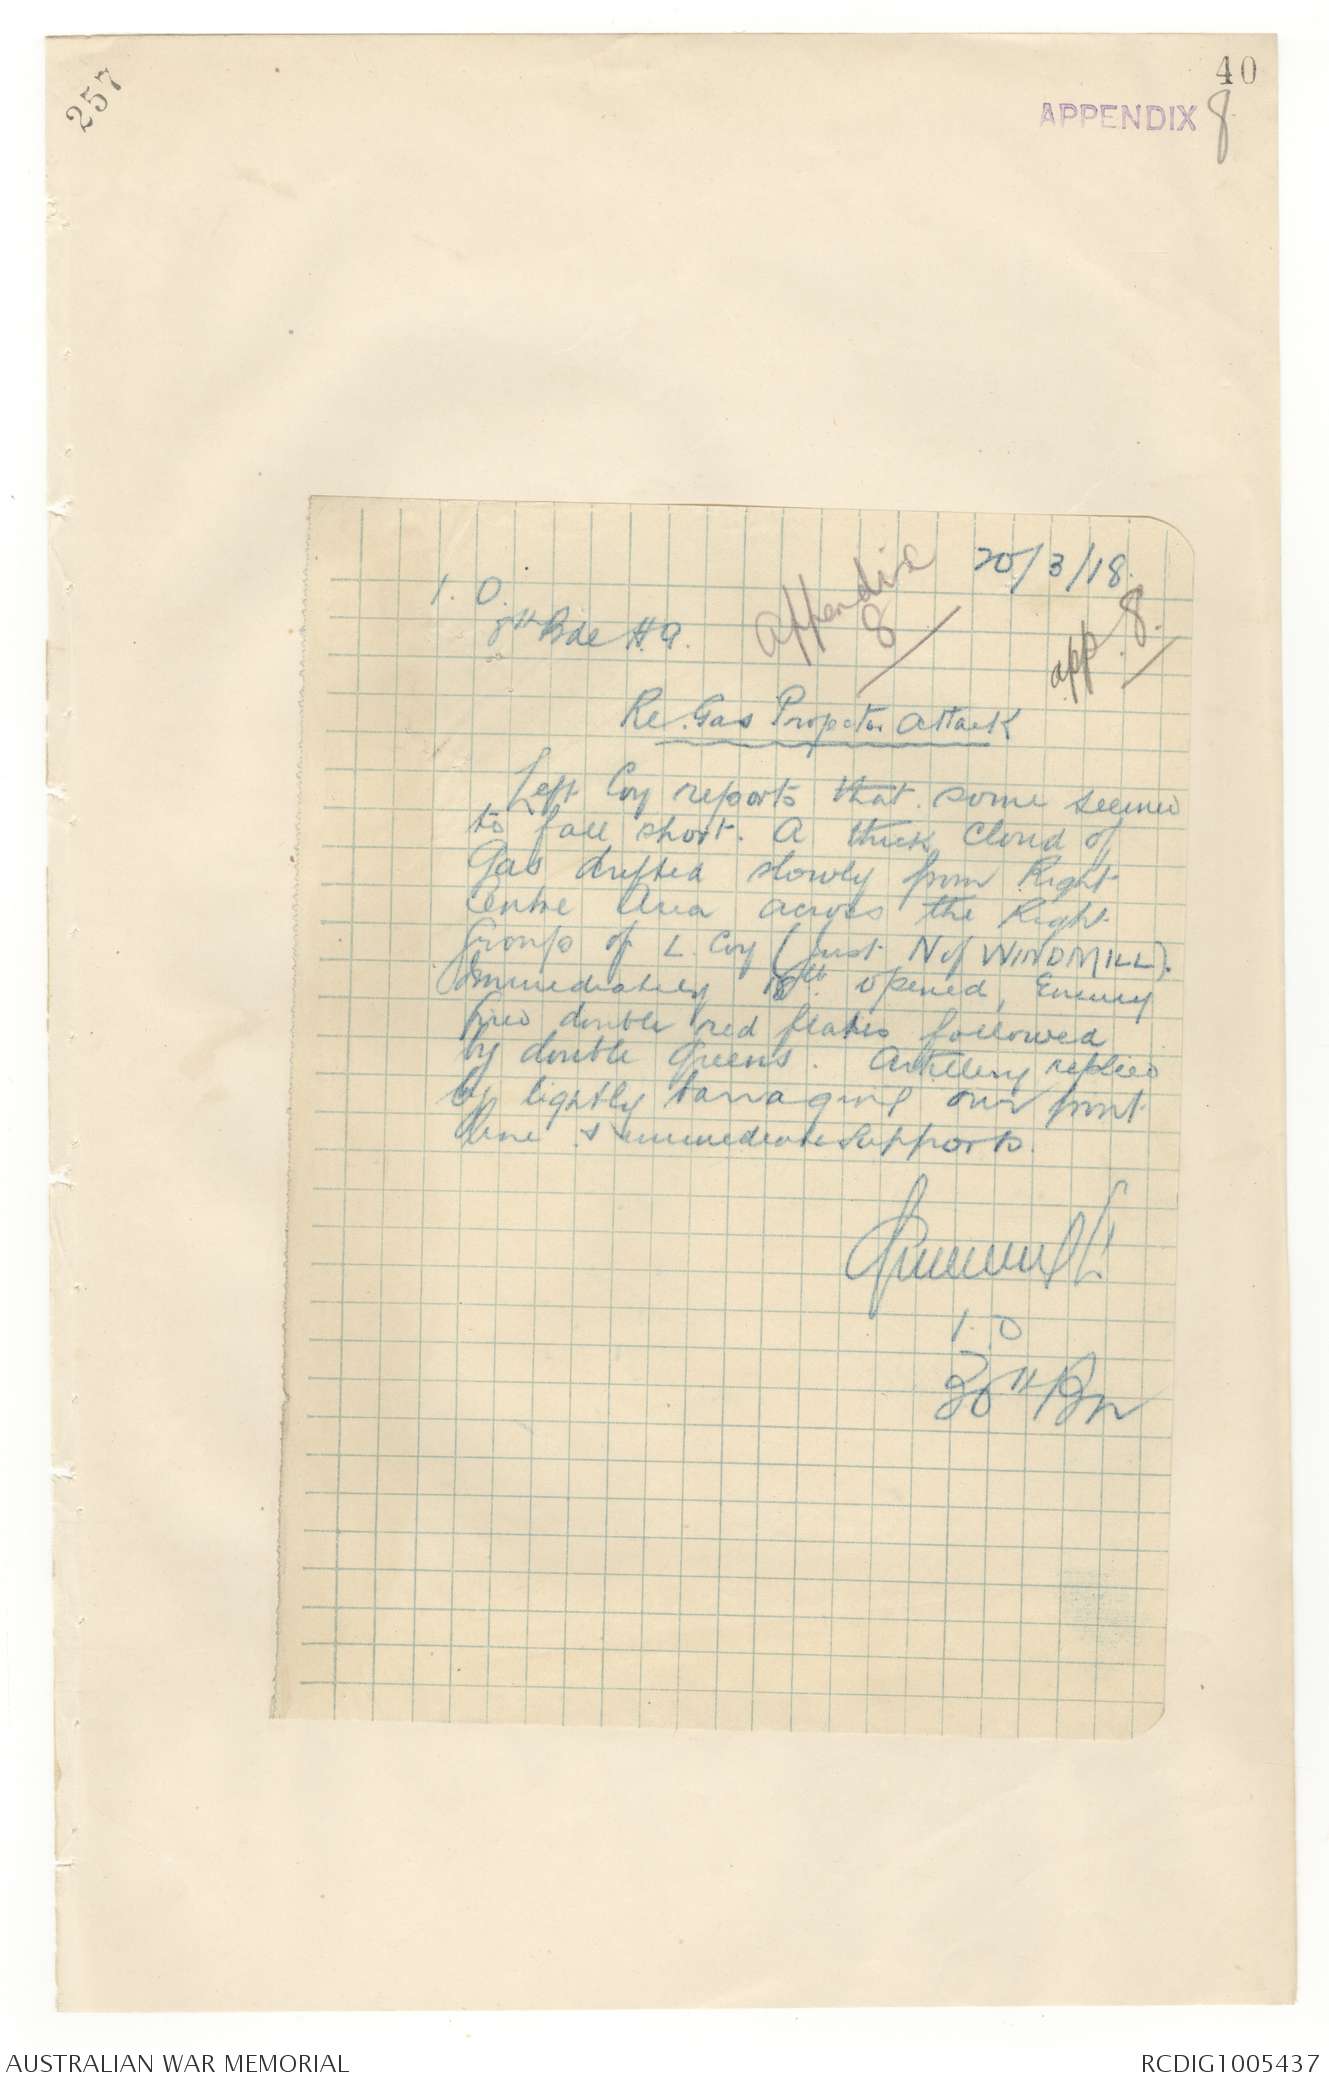 257
40
APPENDIX 8
20/3/18.
I. O.
8th Bde H.Q.
Appendix
8
app. 8.
Re. Gas Projector Attack
Left Coy reports that some seemed
to fall short. A thick cloud of
Gas drifted slowly from Right
Centre Area across the Right
Groups of L. Coy (just N of WINDMILL).
Immediately opened, Enemy
fired double red flares followed
by double greens. Artillery replied
by lightly barraging our front
line & immediate supports.
I. O
30th Bn
AUSTRALIAN WAR MEMORIAL
RCDIG1005437